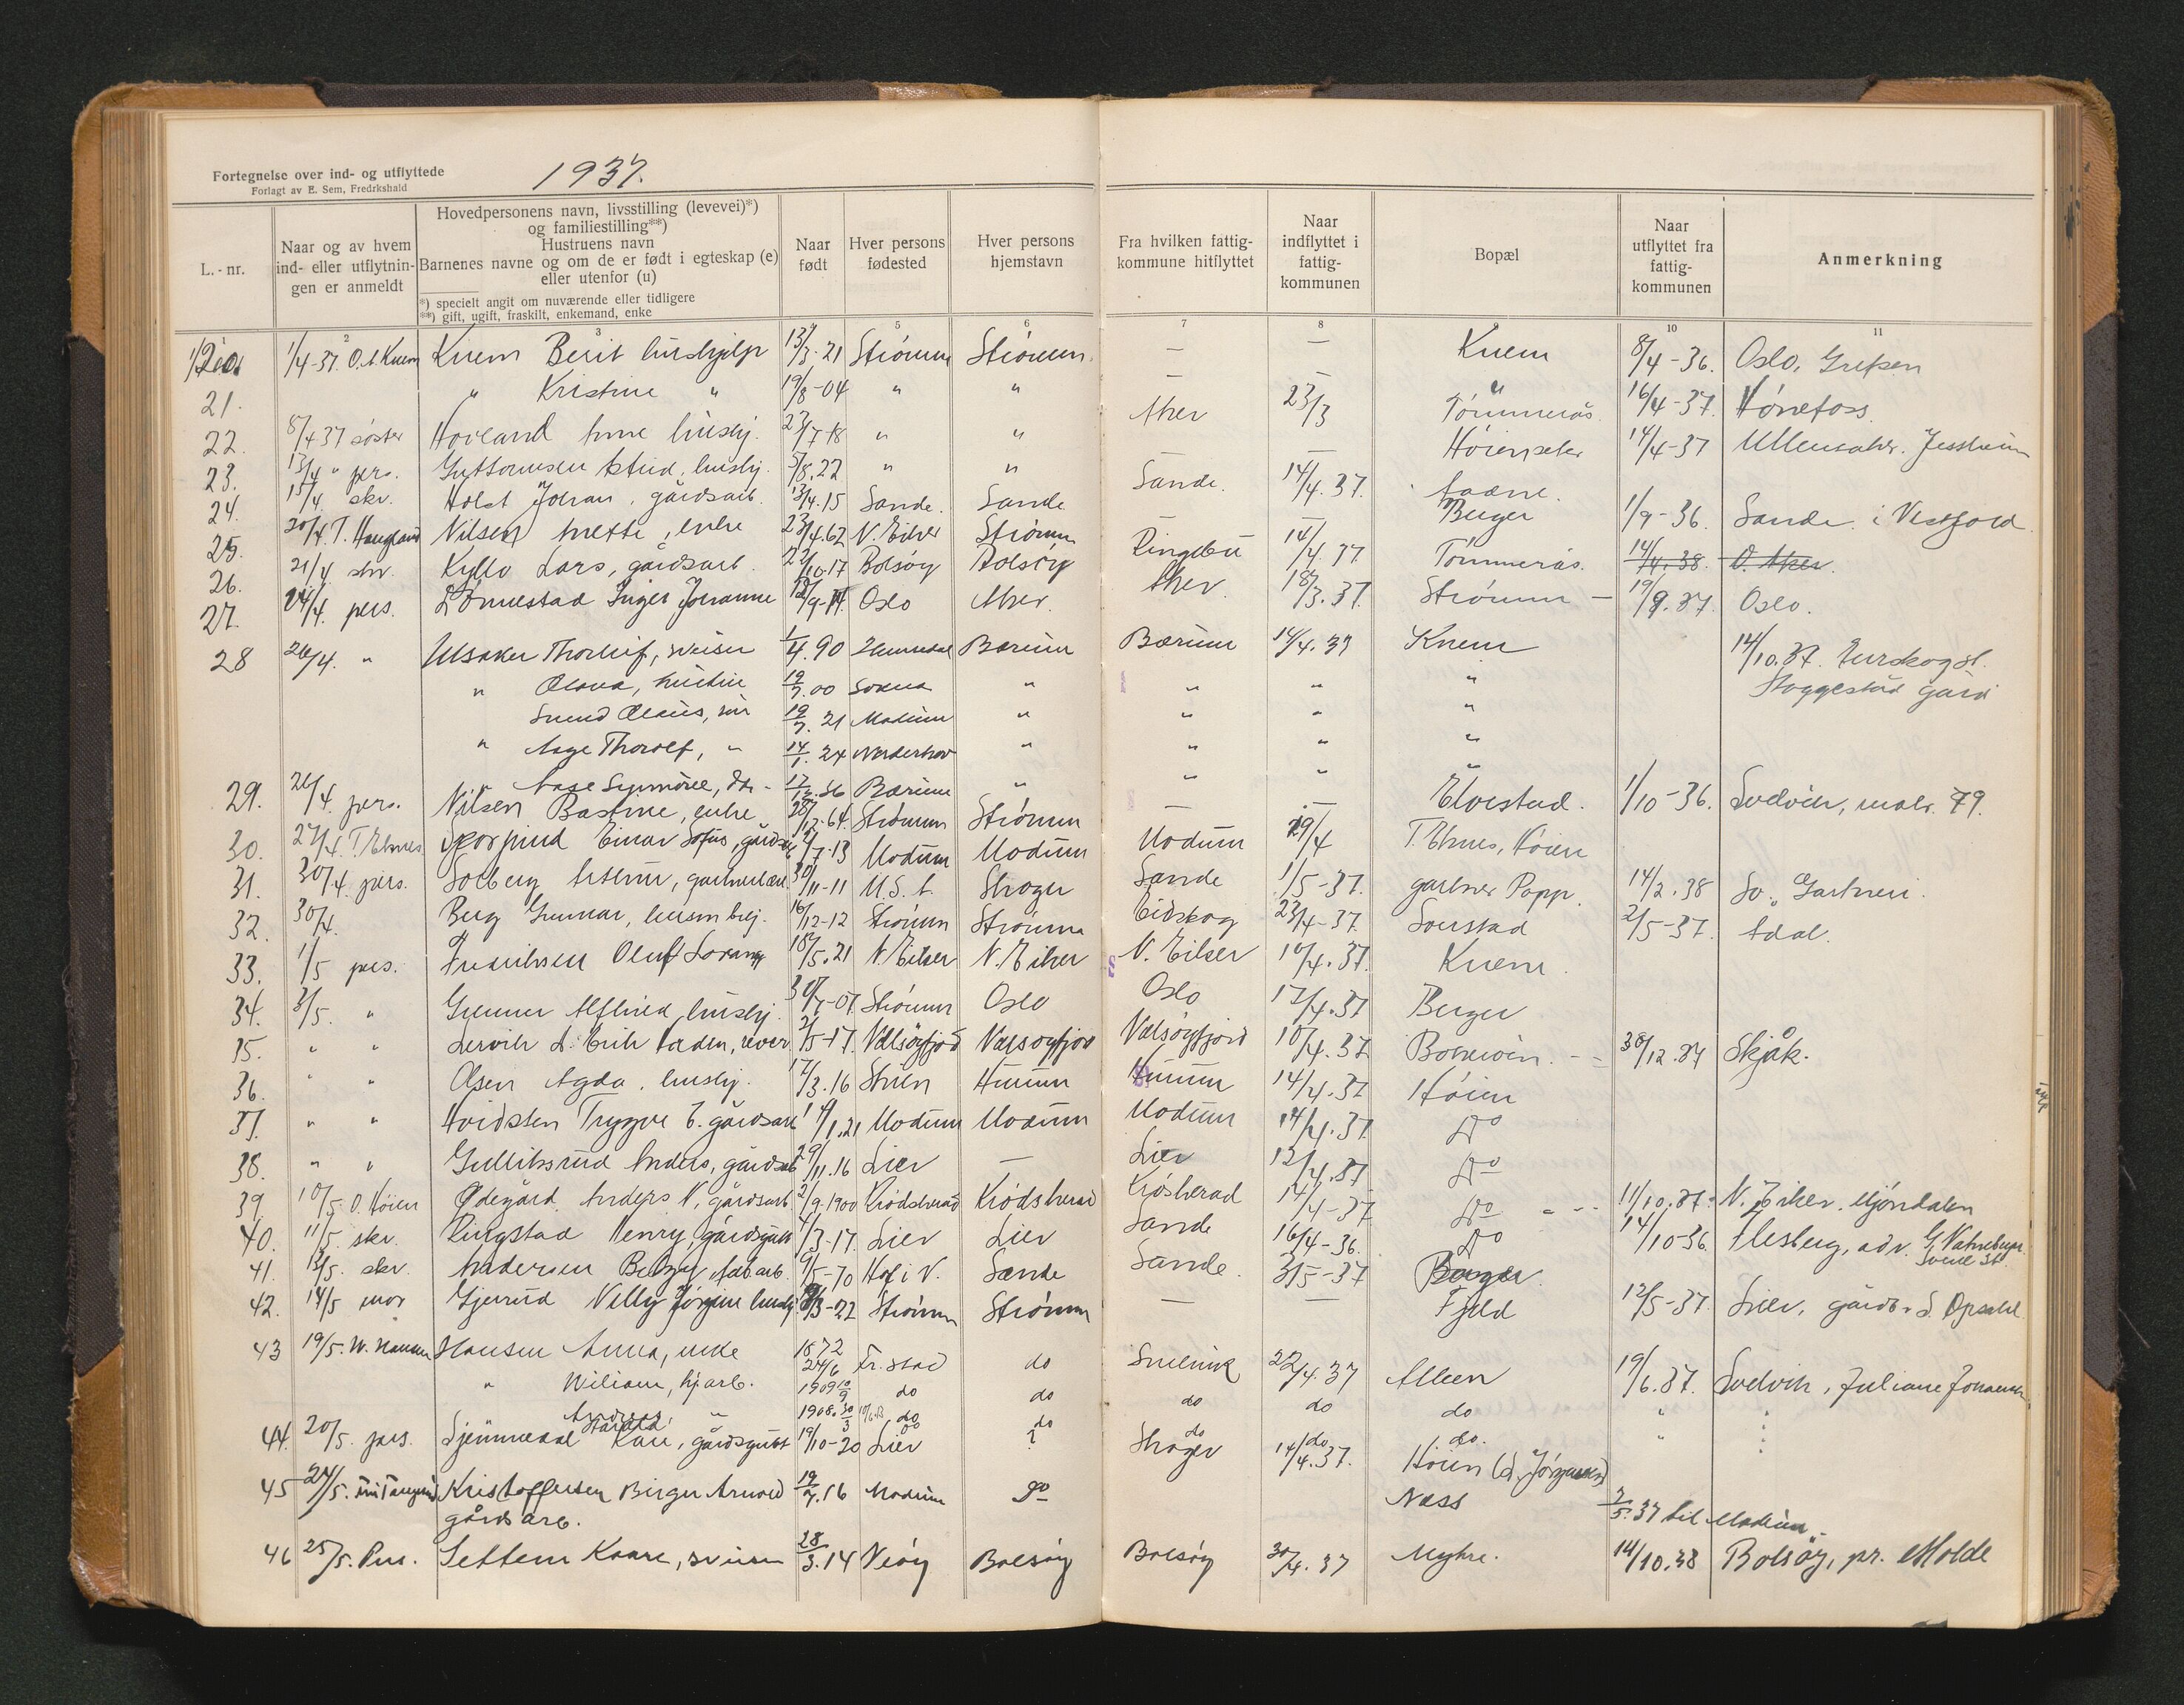 Fortegnelse over ind- og utflyttede
Forlagt av E. Sem, Fredrkshald
1937.
L.-nr.
Naar og av hvem ind- eller utflytningen er anmeldt
Hovedpersonens navn, livsstilling (levevei)*)
og familiestilling**)
Hustruens navn
Barnenes navne og om de er født i egteskap (e)
eller utenfor (u)
*) specielt angit om nuværende eller tidligere
**) gift, ugift, fraskilt, enkemand, enke
Naar født
Hver persons fødested
Hver persons hjemstavn
Fra hvilken fattigkommune hitflyttet
Naar indflyttet i fattigkommunen
Bopæl
Naar utflyttet fra fattigkommunen
Anmerkning
2 3 5 6 7 8 10 11
1/4-37. O.A. Knem Knem Berit hushjelp 13/3-21 Strømm Strømm. — — Knem 8/4-36. Oslo, Grefsen
21. " Kristine " 19/8-04 " " — — " 16/4-37. Hønefoss
22. 8/4 37 søster Hovland Anne hushj. 23/7-18 " " Aker 23/3 Tømmerås. 14/4-37 Ullensaker. Jessheim
23. 13/4 " pers. Guttormsen Astrid, hushj. 5/8.22 " " — — Høienseter
24. 15/4. skr. Holst Johan, gårdsarb. 13/4.15 Sande. Sande Sande. 14/4.37.
25. 20/4. T. Haugland Nilsen Anette, enke 23/4.62 N. Eiker Strømm — — Berger 1/9-36. Sande i Vestfold.
26. 21/4 skr. Kyllo Lars, gårdsarb. 22/10-17 Bolsøy Bolsøy Ringebu 14/4.37 Tømmerås. 14/4.38. O. Aker.
27. 24/4. pers. Lømestad Inger Johanne Oslo Aker. Aker. 18/3.37. Strømm — 19/9.37. Oslo.
28 26/4. " Ulsaker Thorleif, sveiser 1/4.90 Hemsedal Bærum Bærum 14/4.37 Knem 14/10.37. Aurskog st.
" Olava, hustru 19/7.00 Sokna " " " " Hoggestad gård
Svend Olaus, søn 19/7.21 Modum " " " "
" Aage Thorolf, " 14/1.24 Norderhov " " " "
" Aase Synnøve, dtr. 17/12.36 Bærum " " " "
29. 26/4. pers. Nilsen Bastine, enke 28/12-64. Strømm Strømm — — Elvestad. 1/10-36. Svelvik, malr. 79.
30. 27/4. T. Ehnes Skorpind Einar Sofus, gårdsarb 7.13 Modum Modum Modum 29/4 T. Ehnes, Høien
31. 30/4. pers. Solberg Arthur, 30/11-11 U.S.A. Skoger Sande 1/5-37. gartner Popp. 14/2.38 Sv. Gartneri.
32. 30/4. Berg Gunnar, 16/12-12 Strømm Strømm Eidskog 23/4-37. Sørstad 2/5-37. Ådal.
33. 1/5 pers. Fredriksen Oluf Lorang 18/5.21 N. Eiker N. Eiker N. Eiker 10/4.37. Knem.
34. 3/5. " Grunner Alfhild, hushj. Strømm Oslo Oslo 17/4.37 Berger
15. " " Lervik 2/5-17. Valsøyfjord Valsøyfjord Valsøyfjord 10/4.37 30/12.37 Skjåk.
36. " " Olsen Agda, hushj. 17/3.16 Hurum Hurum 14/4.37 Høien
37. " " Hvidsten Trygve E. gårdsarb 1.21 Modum Modum Modum 14/4.37. Do
38. " " Gulliksrud Anders, gårdsarb 29/11.16 Lier — Lier 12/4.37 Do
39. 10/5 O. Høien Ødegård Anders N. gårdsarb. 2/9.1900 Krødsherad Krødsherad Krødsherad 14/4-37 Do 11/10.37. N. Eiker. Mjøndalen
40. 11/5. skr. Ringstad Henry, gårdsgutt 4/3-17. Lier Lier Sande 16/4-36. Do 14/10-36.
41. 13/5. skr. Andersen fab.arb. 9/5-70 Hof i V. Sande Sande. 3/5-37 Berger.
42. 14/5 mor Gjerrud Nelly Jørgine hushj. 3-22 Strømm Strømm — — Fjeld 12/5-37. Lier, gårdb. S. Opsahl
43 19/5. W. Hansen Hansen Anna, enke 1872 24/6 Fr.stad do 22/4.37 19/6.37. Svelvik, Juliane Johansen
" Wiliam, hj.arb. 1909 10/9 do do do do do " "
" 1908. 30/3 do do do do do. " "
Harald
44. 20/5. pers. Kåre, gårdsgutt 19/10-20 Lier ? Skoger 14/4.37. Høien
45 24/5. Kristoffersen Birger Arnold 19/7.16 Modum do Næss 7/5.37 til Modum.
gårdsarb.
46 25/5. Pers. Settem Kaare, sveiser 28/3.14 Veøy Bolsøy Bolsøy 30/4.37 Myhre. 14/10.38 Bolsøy, pr. Molde